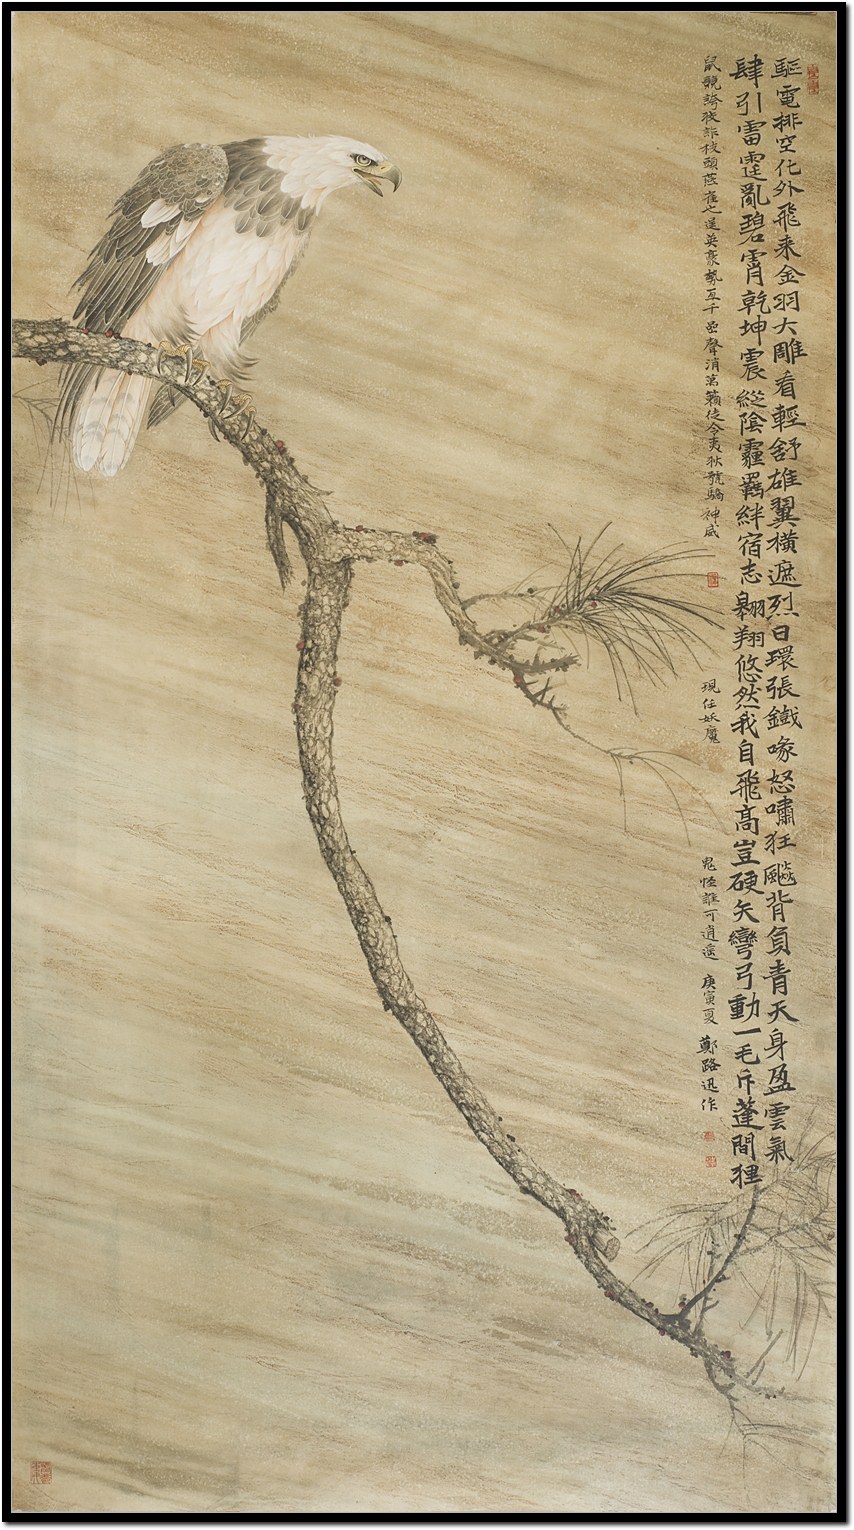 驅電排空化外飛来金羽大雕看輕舒雄翼橫遮烈日環張鐵喙怒嘯狂飈背負青天身盈雲氣
肆引雷霆亂碧霄乾坤震縱陰霾羈絆宿志翱翔悠然我自飛髙豈硬矢彎弓動一毛斥蓬間狸
鼠競誇狡詐枝頭燕雀也逞英豪勢亙千聲消萬籟使令夷狄號驕神威
現任妖魔
鬼怪誰可逍遥 庚寅夏 鄭路迅作